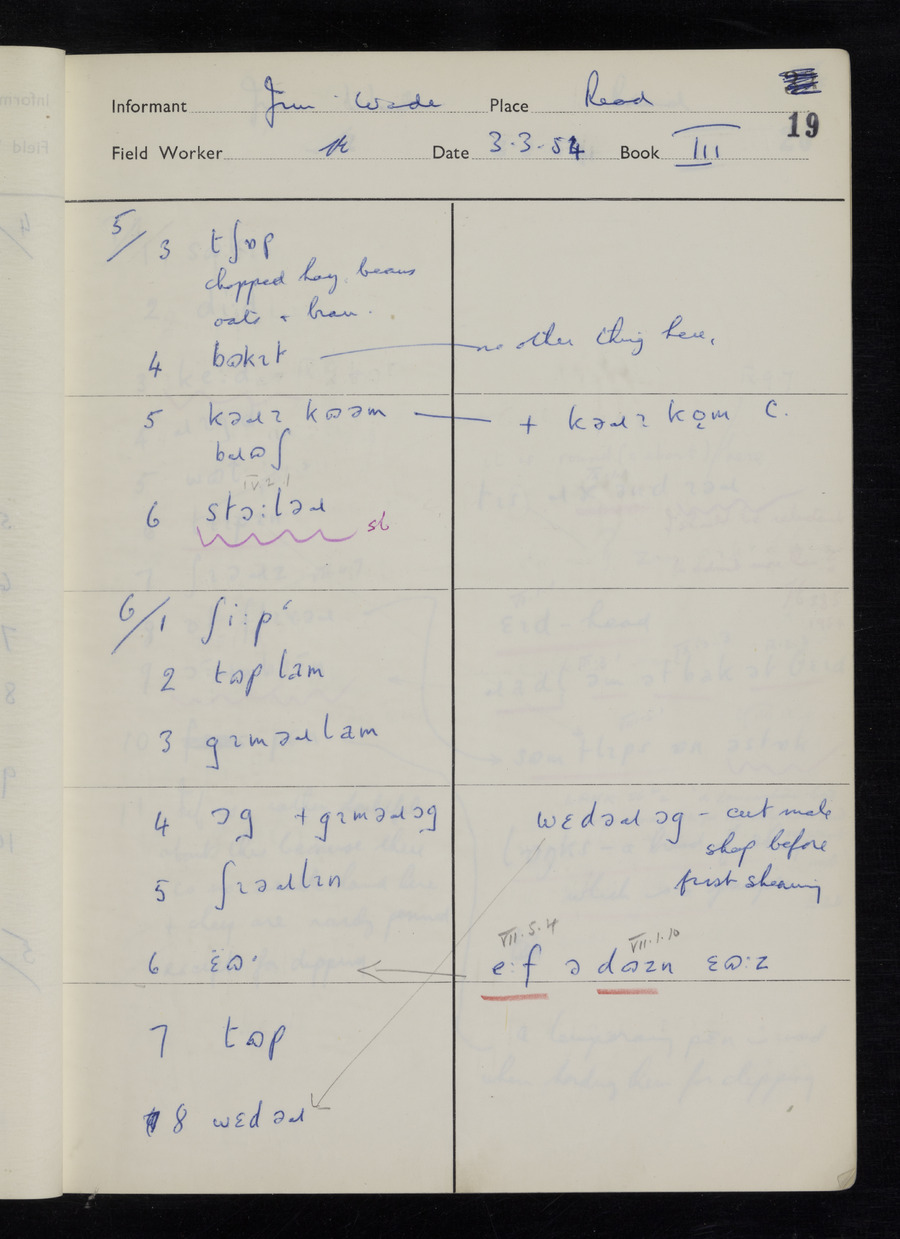 Informant Jim Wade Place Read
19
Field Worker Date 3.3.54 Book III
5/ 3 tʃɒp
chopped hay, beans
oats + bran.
4 bʊkɪt no other thing here.
5 kəɹɪ kʊəm + kəɹɪ kǫm C.
bɹʊʃ
IV 2 1
6 stə:ləɹ st
6/1 ʃi:pʿ
2 tɒp lam
3 gɪməɹ lam
4 ɔg + gɪməɹ ɔg wɛdəɹ ɔg - cut male
sheep before
5 ʃɪəɹlɪn first shearing
VII.5.4 VII.1.10
6 ɛʊ· e:f ə dʊzn ɛʊ:z
7 tʊp
8 wɛdəɹ